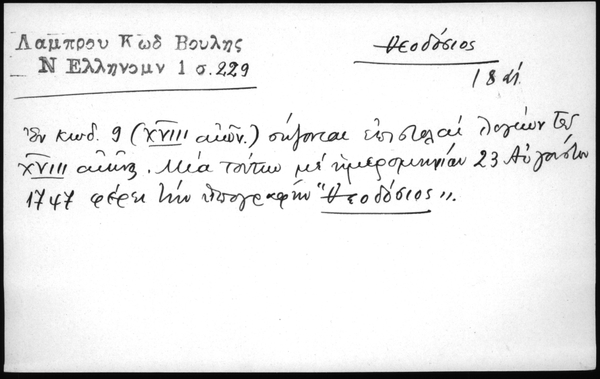 Λαμπρου Κωδ Βουλης
Ν Ελληνομν 1 σ.229
Θεοδόσιος
18 αἰ.
Ἐν κωδ. 9 (XVIII αἰῶν.) σῴζονται ἐπιστολαὶ λογίων τοῦ
XVIII αἰῶνος. Μία τούτων μὲ ἡμερομηνίαν 23 Αὐγούστου
1747 φέρει τὴν ὑπογραφὴν "Θεοδόσιος".